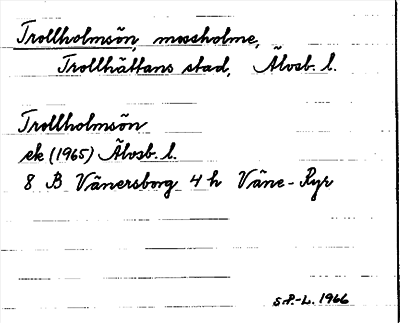 Trollholmsön, mossholme,
Trollhättans stad, Älvsb. l.
Trollholmsön
ek (1965) Älvsb. l.
8 B Vänersborg 4 h Väne-Ryr
S.P.-L. 1966